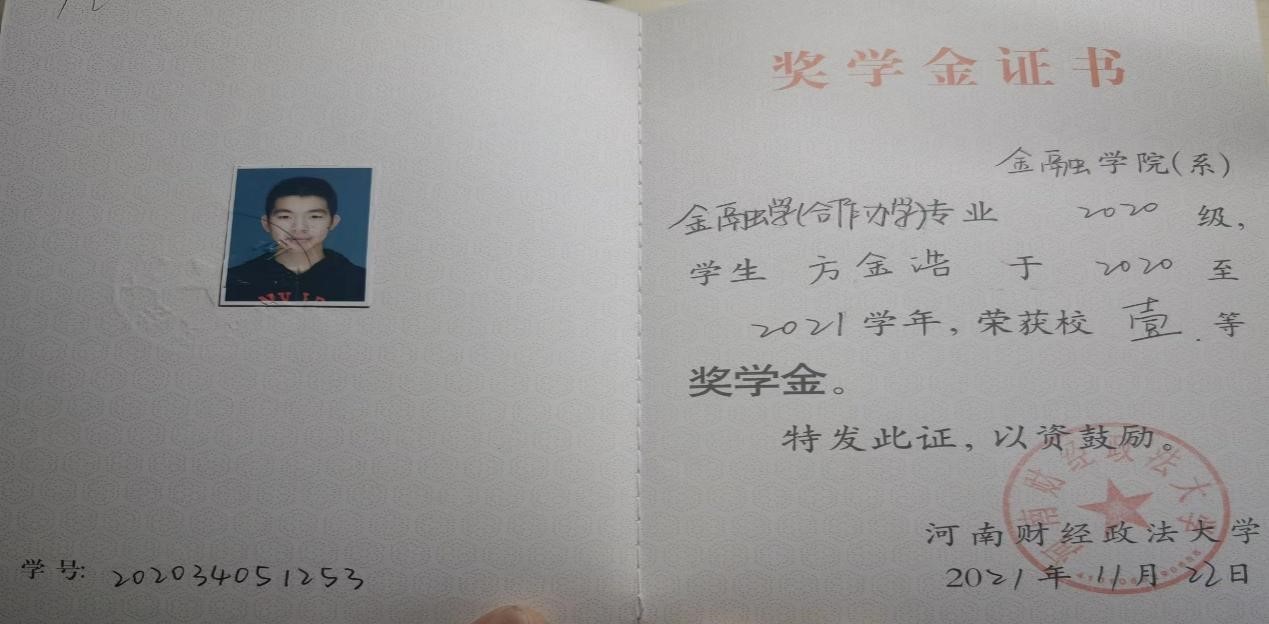 学号: 202034051253
奖学金证书
金融学院(系)
金融学(合作办学)专业 2020 级,
学生 方金浩 于 2020 至
2021学年,荣获校 壹 等
奖学金。
特发此证,以资鼓励。
河南财经政法大学
河南财经政法大学
2021年11月22日